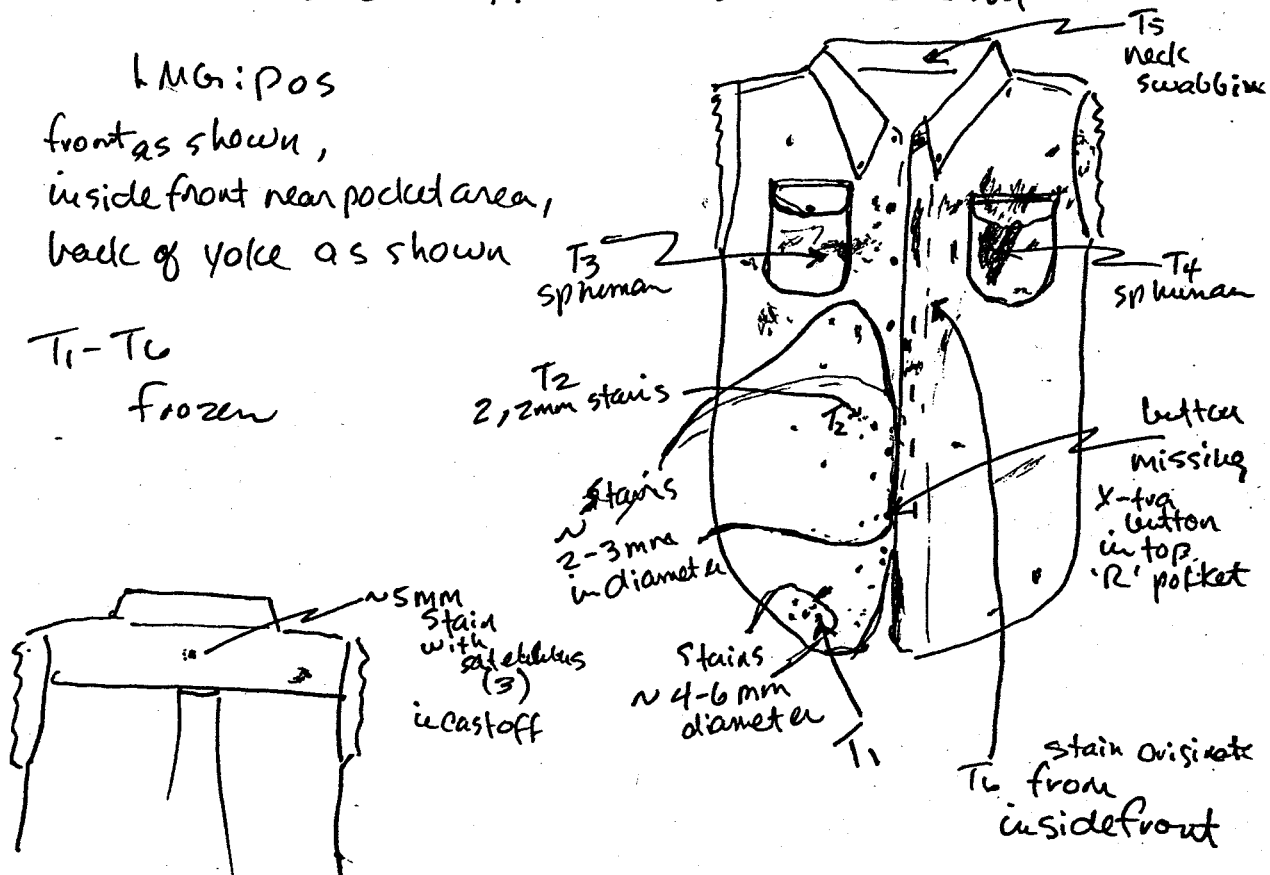 LMG: pos
front as shown,
inside front near pocket area,
back of yoke as shown
T1-T6
frozen
T5
neck
swabbing
T3
sp human
T4
sp human
T2
2, 2mm stains
T2
stains
~
2-3mm
in diameter
button
missing
X-tra
button
in top
'R' pocket
~5mm
stain
with
satellites
(3)
ie castoff
Stains
~ 4-6 mm
diameter
T1
T6
stain originate
from
inside front